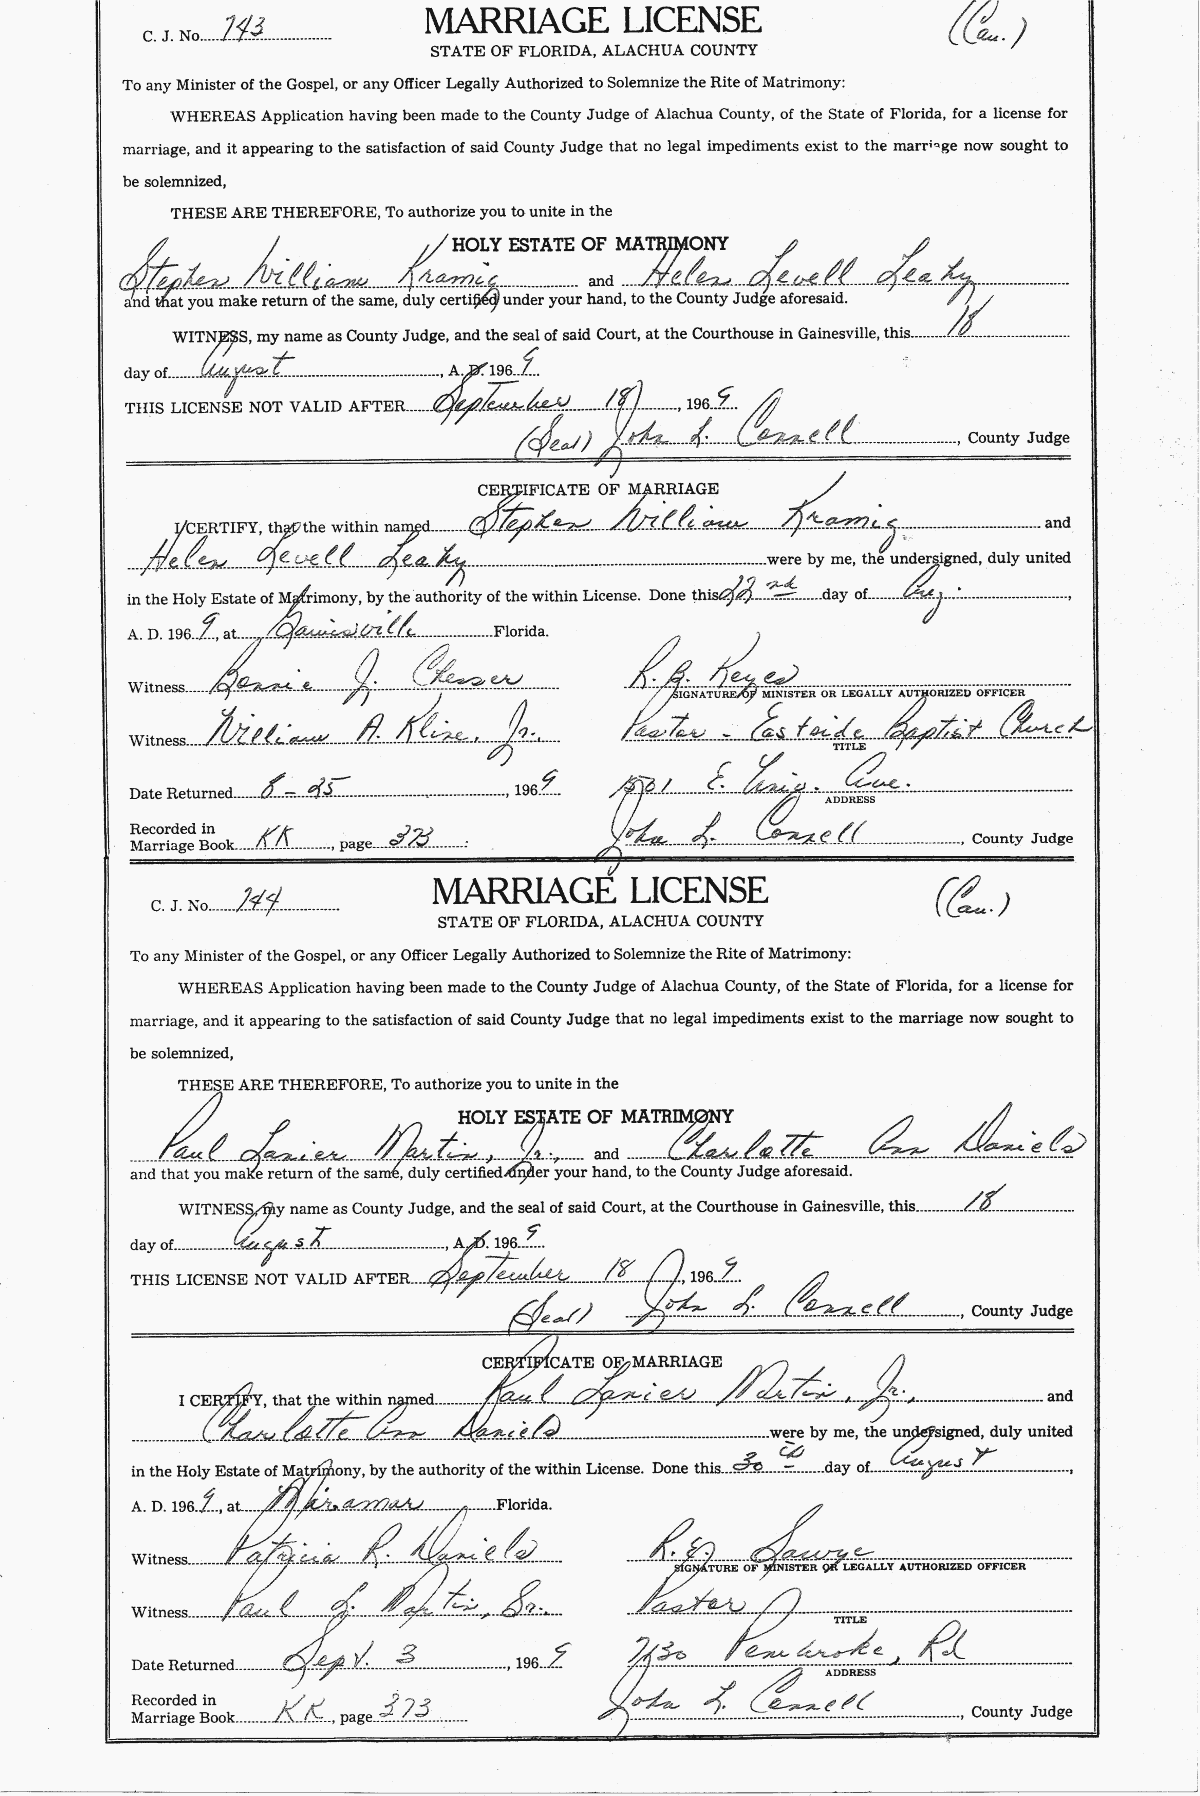 C. J. No. 743 MARRIAGE LICENSE (Cau.)
STATE OF FLORIDA, ALACHUA COUNTY
To any Minister of the Gospel, or any Officer Legally Authorized to Solemnize the Rite of Matrimony:
WHEREAS Application having been made to the County Judge of Alachua County, of the State of Florida, for a license for
marriage, and it appearing to the satisfaction of said County Judge that no legal impediments exist to the marriage now sought to
be solemnized,
THESE ARE THEREFORE, To authorize you to unite in the
HOLY ESTATE OF MATRIMONY
Stephen William Kramig and Helen Levell Leahy
and that you make return of the same, duly certified under your hand, to the County Judge aforesaid.
WITNESS, my name as County Judge, and the seal of said Court, at the Courthouse in Gainesville, this 18
day of August, A. D. 1969
THIS LICENSE NOT VALID AFTER September 18, 1969
(Seal) John L. Connell, County Judge
CERTIFICATE OF MARRIAGE
I CERTIFY, that the within named Stephen William Kramig and
Helen Levell Leahy were by me, the undersigned, duly united
in the Holy Estate of Matrimony, by the authority of the within License. Done this 22nd day of Aug.,
A. D. 1969, at Gainesville Florida.
Witness Bonnie J. Chesser R. B. Keyes
SIGNATURE OF MINISTER OR LEGALLY AUTHORIZED OFFICER
Witness William A. Kline, Jr., Pastor - Eastside Baptist Church
TITLE
Date Returned 8-25, 1969 E. Univ. Ave.
ADDRESS
Recorded in
Marriage Book KK, page 373 John L. Connell, County Judge
C. J. No. 744 MARRIAGE LICENSE (Cau.)
STATE OF FLORIDA, ALACHUA COUNTY
To any Minister of the Gospel, or any Officer Legally Authorized to Solemnize the Rite of Matrimony:
WHEREAS Application having been made to the County Judge of Alachua County, of the State of Florida, for a license for
marriage, and it appearing to the satisfaction of said County Judge that no legal impediments exist to the marriage now sought to
be solemnized,
THESE ARE THEREFORE, To authorize you to unite in the
HOLY ESTATE OF MATRIMONY
Paul Lanier Martin, Jr., and Charlotte Ann Daniels
and that you make return of the same, duly certified under your hand, to the County Judge aforesaid.
WITNESS, my name as County Judge, and the seal of said Court, at the Courthouse in Gainesville, this 18
day of August, A. D. 1969
THIS LICENSE NOT VALID AFTER September 18, 1969
(Seal) John L. Connell, County Judge
CERTIFICATE OF MARRIAGE
I CERTIFY, that the within named Paul Lanier Martin, Jr., and
Charlotte Ann Daniels were by me, the undersigned, duly united
in the Holy Estate of Matrimony, by the authority of the within License. Done this 30th day of August,
A. D. 1969, at Miramar Florida.
Witness Patricia R. Daniels R. E. Sawye
SIGNATURE OF MINISTER OR LEGALLY AUTHORIZED OFFICER
Witness Paul L. Martin, Sr., Pastor
TITLE
Date Returned Sept. 3, 1969 7130 Pembroke, Rd
ADDRESS
Recorded in
Marriage Book KK, page 373 John L. Connell, County Judge